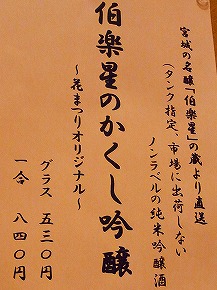 宮城の名醸「伯楽星」の蔵より直送
(タンク指定、市場に出荷しない
ノンラベルの純米吟醸酒
伯楽星のかくし吟醸
~花まつりオリジナル~
グラス 五三〇円
一合 八四〇円